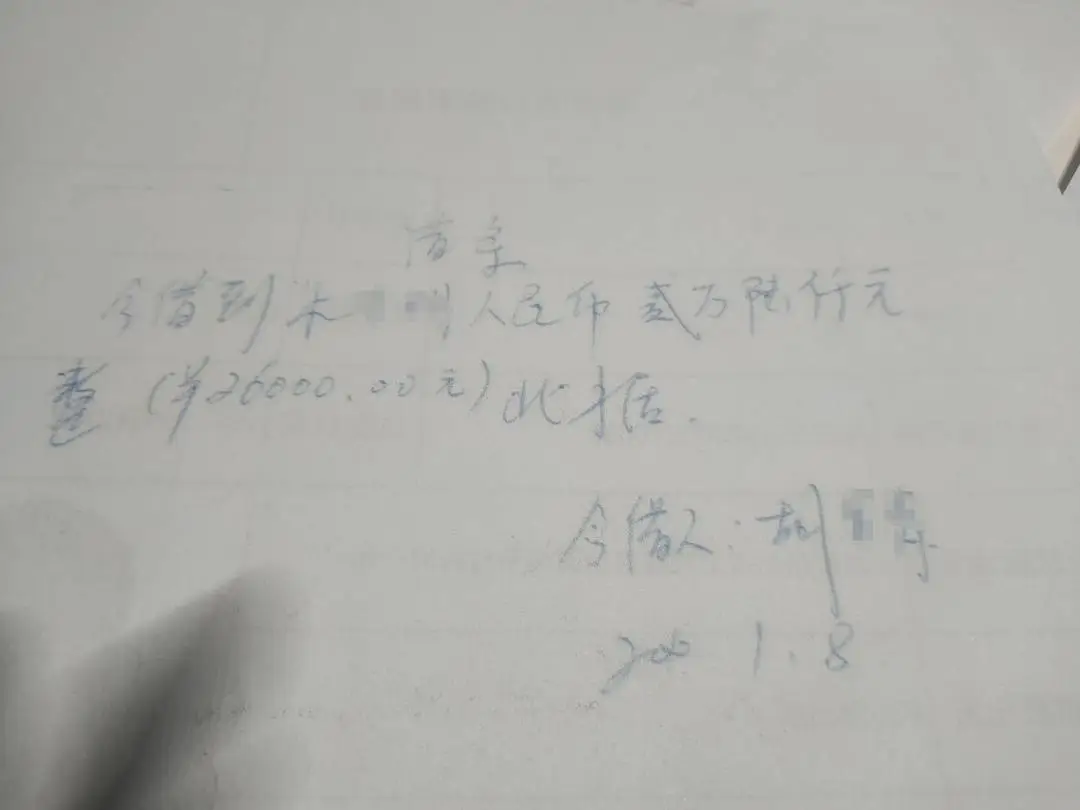 借条
今借到 人民币贰万陆仟元
整(¥26000.00元)此据.
今借人:胡
1.8